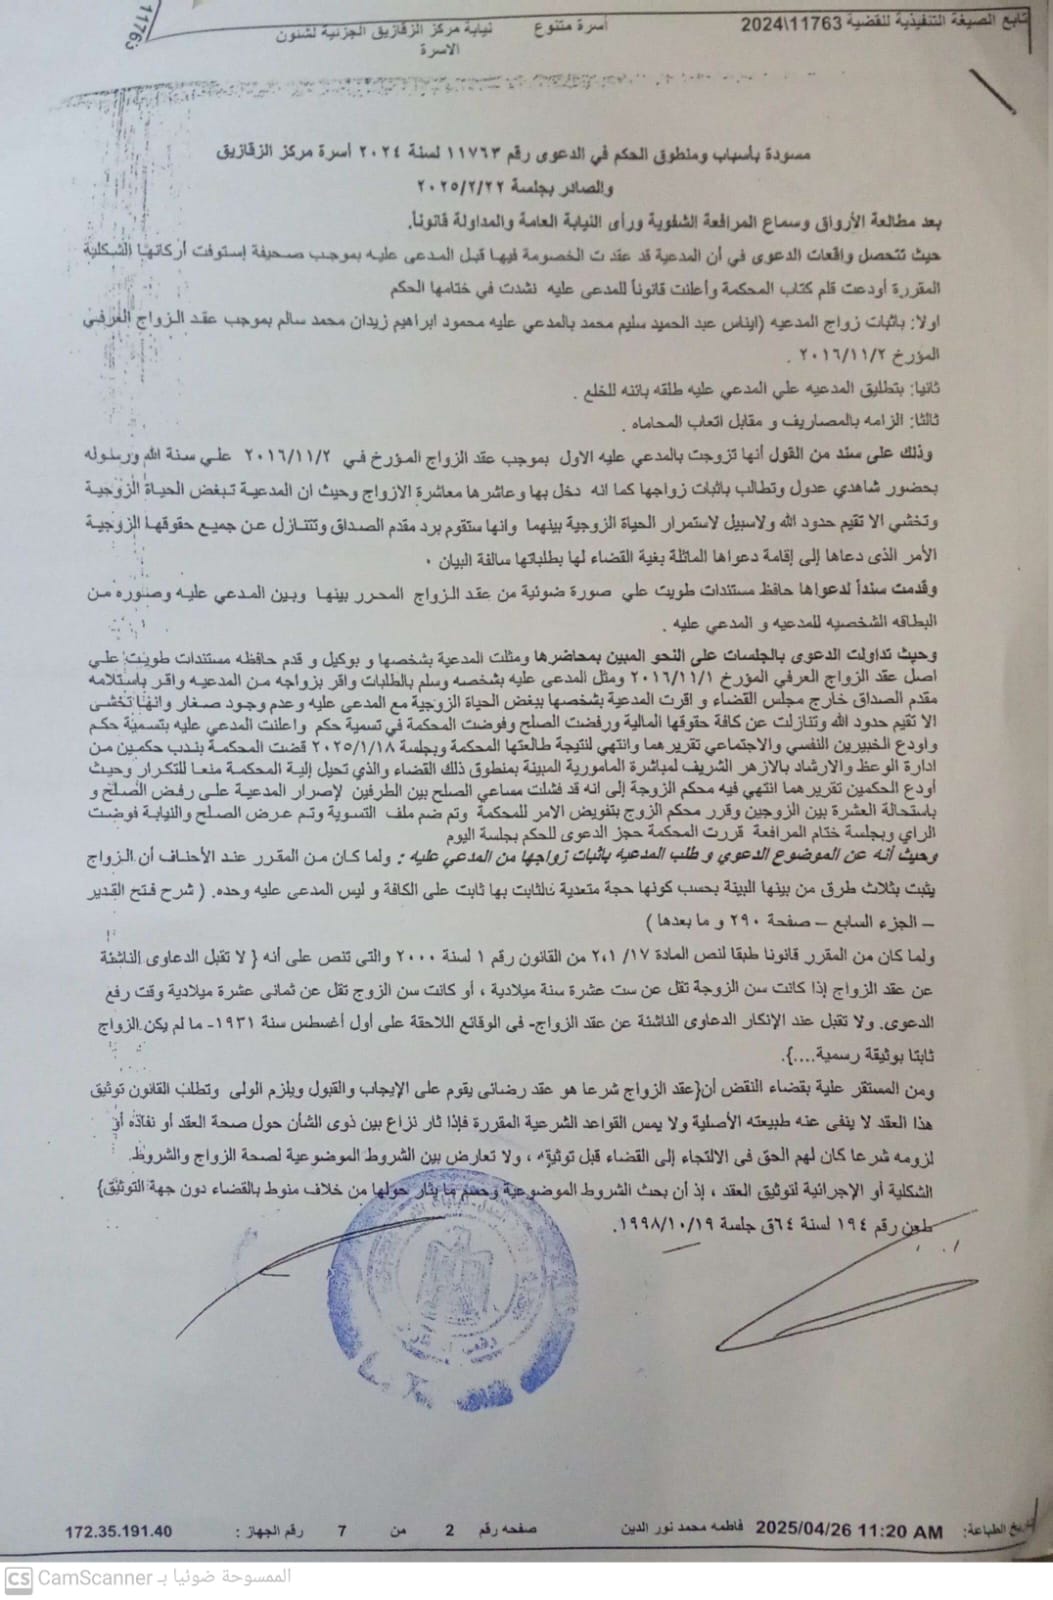 تابع الصيغة التنفيذية للقضية 11763\2024 أسرة متنوع نيابة مركز الزقازيق الجزئية لشئون
الاسرة
11763
مسودة بأسباب ومنطوق الحكم في الدعوى رقم ١١٧٦٣ لسنة ٢٠٢٤ أسرة مركز الزقازيق
والصادر بجلسة ٢٠٢٥/٢/٢٢
بعد مطالعة الأرواق وسماع المرافعة الشفوية ورأى النيابة العامة والمداولة قانوناً.
حيث تتحصل واقعات الدعوى في أن المدعية قد عقدت الخصومة فيها قبل المدعى عليه بموجب صحيفة إستوفت أركانها الشكلية
المقررة أودعت قلم كتاب المحكمة وأعلنت قانوناً للمدعى عليه نشدت في ختامها الحكم
اولا: باثبات زواج المدعيه (ايناس عبد الحميد سليم محمد بالمدعي عليه محمود ابراهيم زيدان محمد سالم بموجب عقد الزواج العرفي
المؤرخ ٢٠١٦/١١/٢ .
ثانيا: بتطليق المدعيه علي المدعي عليه طلقه بائنه للخلع .
ثالثا: الزامه بالمصاريف و مقابل اتعاب المحاماه .
وذلك على سند من القول أنها تزوجت بالمدعي عليه الاول بموجب عقد الزواج المؤرخ في ٢٠١٦/١١/٢ علي سنة الله ورسوله
بحضور شاهدي عدول وتطالب باثبات زواجها كما انه دخل بها وعاشرها معاشرة الازواج وحيث ان المدعية تبغض الحياة الزوجية
وتخشي الا تقيم حدود الله ولاسبيل لاستمرار الحياة الزوجية بينهما وانها ستقوم برد مقدم الصداق وتتنازل عن جميع حقوقها الزوجية
الأمر الذى دعاها إلى إقامة دعواها الماثلة بغية القضاء لها بطلباتها سالفة البيان .
وقدمت سنداً لدعواها حافظ مستندات طويت علي صورة ضوئية من عقد الزواج المحرر بينها وبين المدعي عليه وصوره من
البطاقه الشخصيه للمدعيه و المدعي عليه .
وحيث تداولت الدعوى بالجلسات على النحو المبين بمحاضرها ومثلت المدعية بشخصها و بوكيل و قدم حافظه مستندات طويت علي
اصل عقد الزواج العرفي المؤرخ ٢٠١٦/١١/١ ومثل المدعى عليه بشخصه وسلم بالطلبات واقر بزواجه من المدعيه واقر باستلامه
مقدم الصداق خارج مجلس القضاء و اقرت المدعية بشخصها ببغض الحياة الزوجية مع المدعى عليه وعدم وجود صغار وانها تخشى
الا تقيم حدود الله وتنازلت عن كافة حقوقها المالية ورفضت الصلح وفوضت المحكمة في تسمية حكم واعلنت المدعي عليه بتسمية حكم
واودع الخبيرين النفسي والاجتماعي تقرير هما وانتهي لنتيجة طالعتها المحكمة وبجلسة ٢٠٢٥/١/١٨ قضت المحكمة بندب حكمين من
ادارة الوعظ والارشاد بالازهر الشريف لمباشرة المامورية المبينة بمنطوق ذلك القضاء والذي تحيل إلية المحكمة منعا للتكرار وحيث
أودع الحكمين تقرير هما انتهي فيه محكم الزوجة إلى انه قد فشلت مساعي الصلح بين الطرفين لإصرار المدعية على رفض الصلح و
باستحالة العشرة بين الزوجين وقرر محكم الزوج بتفويض الامر للمحكمة وتم ضم ملف التسوية وتم عرض الصلح والنيابة فوضت
الراي وبجلسة ختام المرافعة قررت المحكمة حجز الدعوى للحكم بجلسة اليوم
وحيث أنه عن الموضوع الدعوي و طلب المدعيه باثبات زواجها من المدعي عليه : ولما كان من المقرر عند الأحناف أن الزواج
يثبت بثلاث طرق من بينها البينة بحسب كونها حجة متعدية فالثابت بها ثابت على الكافة و ليس المدعى عليه وحده. ( شرح فتح القدير
– الجزء السابع – صفحة ٢٩٠ و ما بعدها )
ولما كان من المقرر قانونا طبقا لنص المادة ١٧/ ٢،١ من القانون رقم ١ لسنة ٢٠٠٠ والتى تنص على أنه { لا تقبل الدعاوى الناشئة
عن عقد الزواج إذا كانت سن الزوجة تقل عن ست عشرة سنة ميلادية ، أو كانت سن الزوج تقل عن ثمانى عشرة ميلادية وقت رفع
الدعوى. ولا تقبل عند الإنكار الدعاوى الناشئة عن عقد الزواج- فى الوقائع اللاحقة على أول أغسطس سنة ١٩٣١- ما لم يكن الزواج
ثابتا بوثيقة رسمية....}.
ومن المستقر علية بقضاء النقض أن{عقد الزواج شرعا هو عقد رضائى يقوم على الإيجاب والقبول ويلزم الولى وتطلب القانون توثيق
هذا العقد لا ينفى عنه طبيعته الأصلية ولا يمس القواعد الشرعية المقررة فإذا ثار نزاع بين ذوى الشأن حول صحة العقد أو نفاذه أو
لزومه شرعا كان لهم الحق فى الالتجاء إلى القضاء قبل توثيقه ، ولا تعارض بين الشروط الموضوعية لصحة الزواج والشروط
الشكلية أو الإجرائية لتوثيق العقد ، إذ أن بحث الشروط الموضوعية وحسم ما يثار حولها من خلاف منوط بالقضاء دون جهة التوثيق}
طعن رقم ١٩٤ لسنة ٦٤ق جلسة ١٩٩٨/١٠/١٩.
تاريخ الطباعة: 2025/04/26 11:20 AM فاطمه محمد نور الدين صفحه رقم 2 من 7 رقم الجهاز : 172.35.191.40
الممسوحة ضوئيا بـ CamScanner
CS